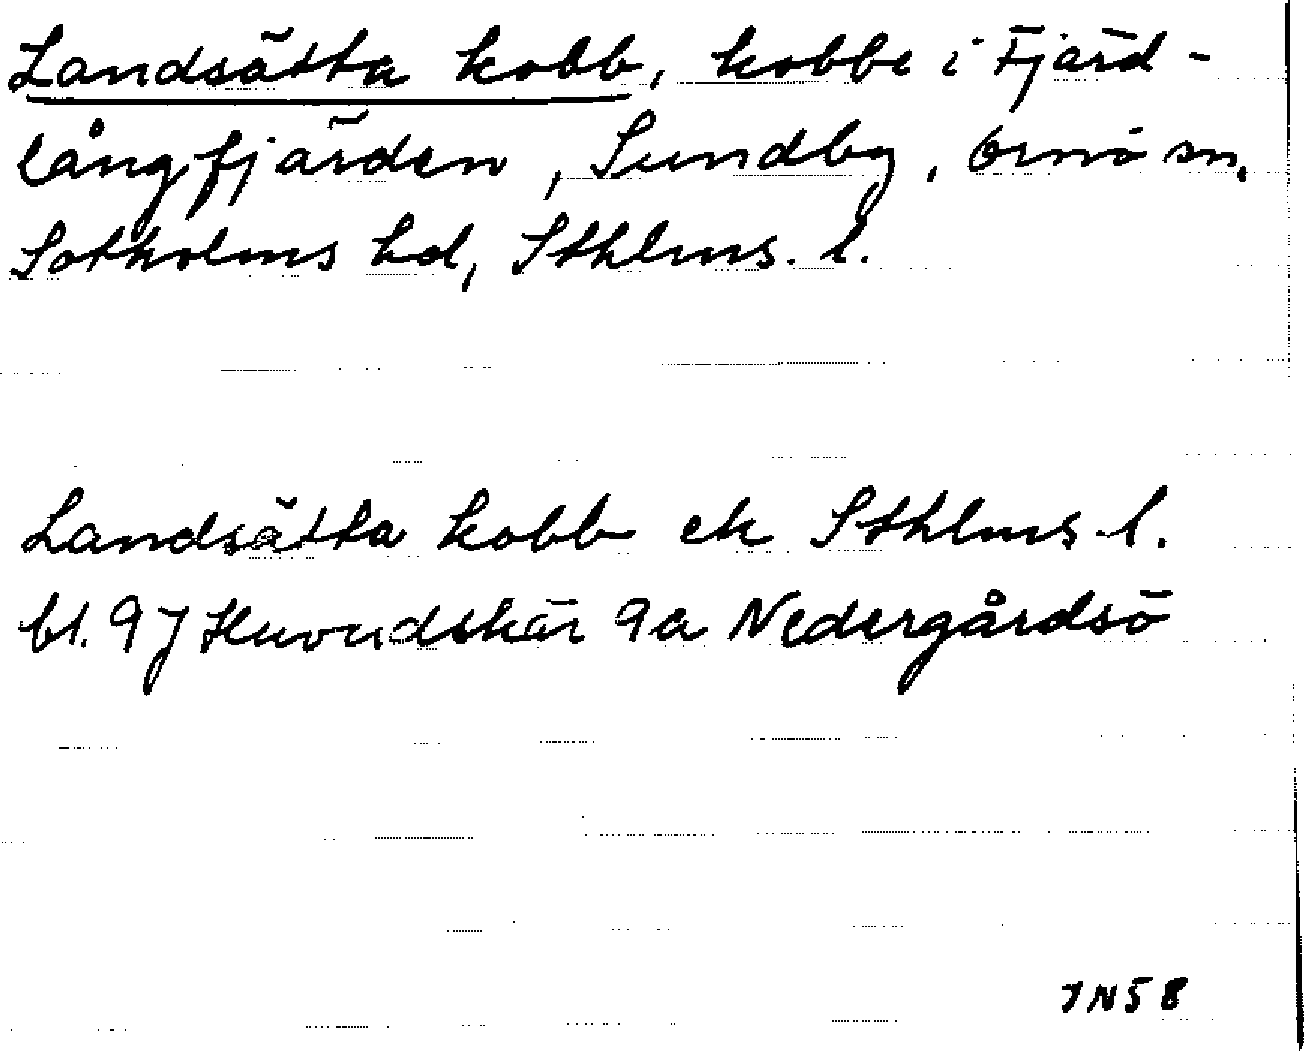 Landsätta kobb, kobbe i Fjärd-
långfjärden, Sundby, Ornö sn,
Sotholms hd, Sthlms. l.
Landsätta kobb ek Sthlms l.
bl. 97 Huvudskär 9a Nedergårdsö
JN58